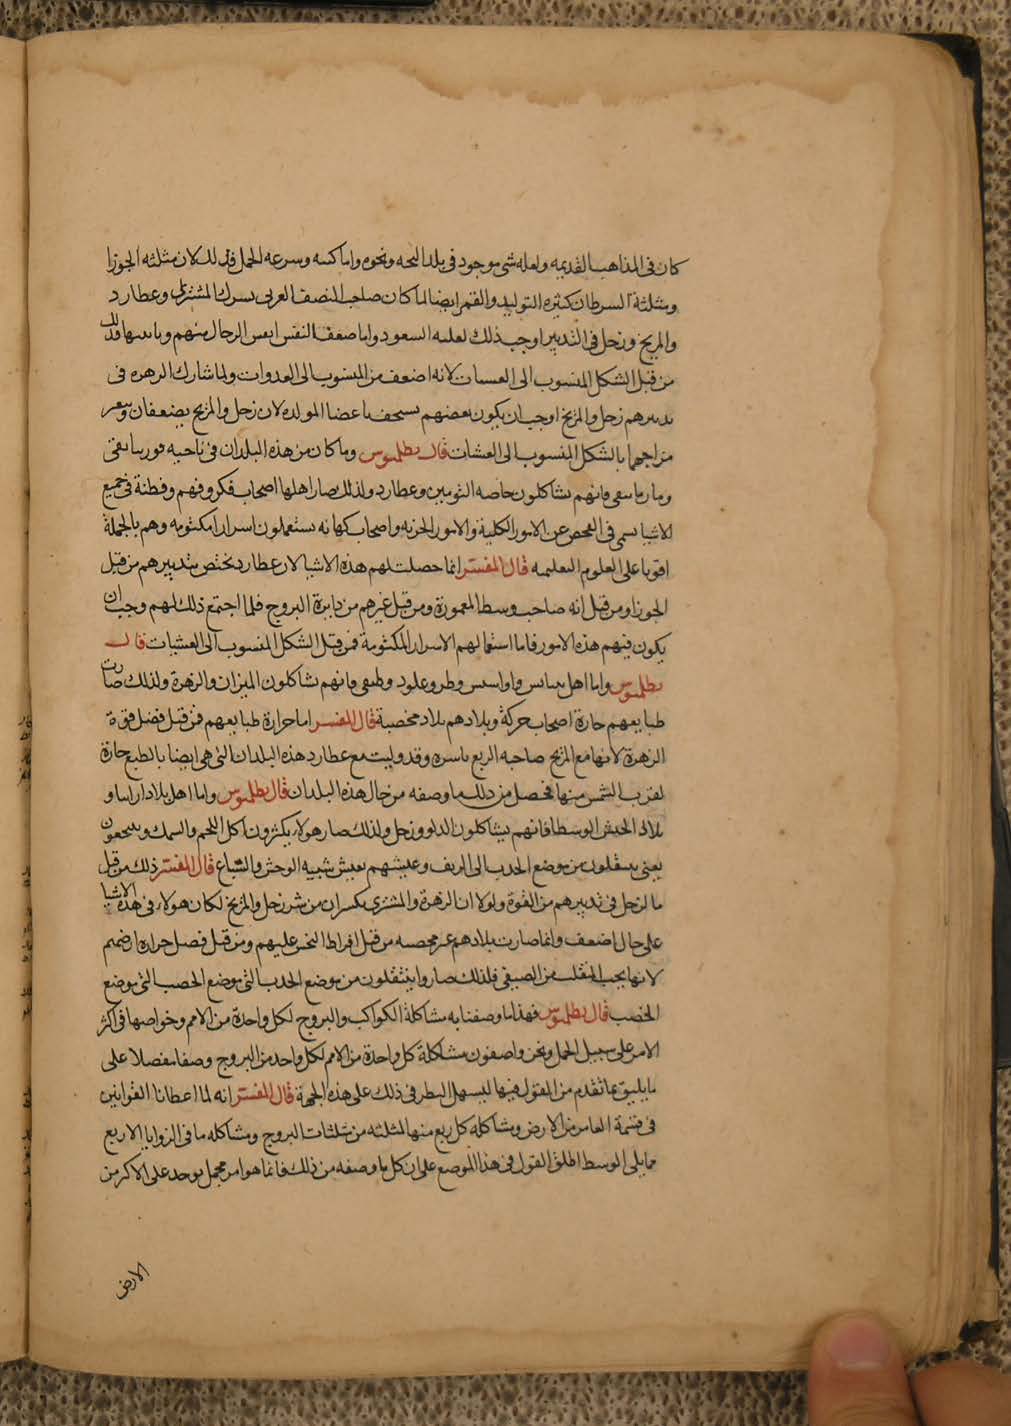 كان فى المذاهب القديمه ولعله شى موجود فى بلد البجه ونحوه واما كسه وسرعه الحمل فذلك لان مثلثه الجوزا
ومثلثة السرطان كثيره التوليد والقمر ايضا لما كان صاحب النصف الغربى يشرك المشترى وعطارد
والمريخ وزحل فى التدبير اوجب ذلك لغلبه السعود واما ضعف النفس انفس الرجال منهم وتانيثها فذلك
من قبل الشكل المنسوب الى العشيات لانه اضعف من المنسوب الى الغدوات ولما شارك الزهره فى
تدبيرهم زحل والمريخ اوجب ان يكون بعضهم يستخف باعضا المولده لان زحل والمريخ يضعفان
مزاجهما بالشكل المنسوب الى العشات قال بطلميوس وما كان من هذه البلدان فى ناحيه قورينا بقى
ومارماىىقى فانهم يشاكلون خاصه التومين وعطارد ولذلك صار اهلها اصحاب فكر وفهم وفطنة فى جميع
الاشيا سىمى فى الفحص عن الامور الكلية والامور الجزيه واصحاب كهانه يستعملون اسرار امكتومه وهم بالجملة
اقويا على العلوم التعليميه قال المفسر انما حصلت لهم هذه الاشيا لان عطارد يختص بتدبيرهم من قبل
الجوزا ومن قبل انه صاحب وسط المعمورة ومن قبل غيرهم من دايرة البروج فلما اجتمع ذلك لهم وجب ان
يكون فيهم هذه الامور فاما استعمالهم الاسرار المكتومة فمن قبل الشكل المنسوب الى العشيات قال
بطلميوس واما اهل وطىىقى فانهم يشاكلون الميزان والزهرة ولذلك صارت
طبايعهم حارة اصحاب حركة وبلادهم بلاد مخصبة قال المفسر اما حرارة طبايعهم فمن قبل فضل قوة
الزهرة لانها مع المريخ صاحبه الربع باسره وقد وليت مع عطارد هذه البلدان التى هى ايضا بالطبع حارة
لقرب الشمس منها فحصل من ذلك ما وصفه من حال هذه البلدان قال بطلميوس واما اهل بلاد ارابيا و
بلاد الحبش الوسطا فانهم يشاكلون الدلو وزحل ولذلك صار هولا يكثرون اكل اللحم والسمك وينتجعون
يعنى ينتقلون من موضع الجدب الى الريف وعيشهم بعيش شبيه الوحش والسباع قال المفسر ذلك من قبل
ما لزحل فى تدبيرهم من القوة ولولا ان الزهرة والمشترى يكسران من شر زحل والمريخ لكان هولا فى هذه الاشيا
على حال اضعف وانما صارت بلادهم غير مخصبه من قبل افراط النحس عليهم ومن قبل فضل حرارة ارضهم
لانها تجب المنقلب من الصيفى فلذلك صاروا ينتقلون من موضع الجدب التى موضع الخصب التى موضع
الخصب قال بطلميوس فهذا ما وصفنا به مشاكلة الكواكب والبروج لكل واحدة من الامم وخواصها فى اكثر
الامر على سبيل الجمل ونحن واصفون مشاكلة كل واحدة من الامم لكل واحد من البروج وصفا مفصلا على
ما يليق بما تقدم من القول فيها ليسهل النظر فى ذلك على هذه الجهة قال المفسر انه لما اعطانا القوانين
فى قسمة العامر من الارض ومشاكله كل ربع منها لمثلثه من مثلثات البروج ومشاكله ما فى الزوايا الاربع
مما يلى الوسط اطلق القول فى هذا الموضع على ان كل ما وصفه من ذلك فانما هو امر مجمل يوجد على الاكثر من
الارض